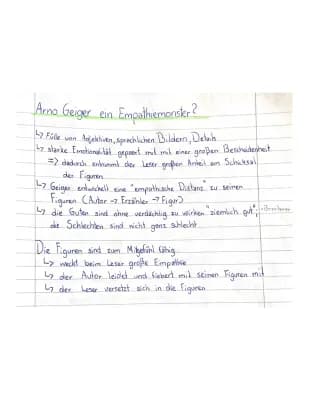 Arno Geiger ein Empathiemonster?
↳ Fülle von Adjektiven, sprachlichen Bildern, Details
↳ starke Emotionalität gepaart mit mit einer großen Bescheidenheit
=> dadurch entnimmt der Leser großen Anteil am Schicksal
der Figuren
↳ Geiger entwickelt eine "empathische Distanz" zu seinen
Figuren (Autor → Erzähler → Figur)
↳ die Guten sind ohne verdächtig zu wirken "ziemlich gut",
die Schlechten sind nicht ganz schlecht
Die Figuren sind zum Mitgefühl fähig
↳ weckt beim Leser große Empathie
↳ der Autor leidet und fiebert mit seinen Figuren mit
↳ der Leser versetzt sich in die Figuren